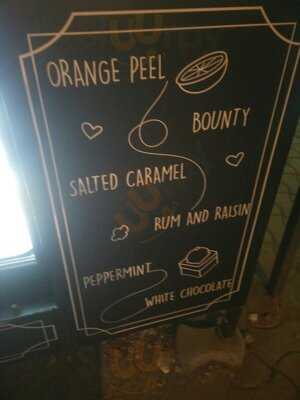 ORANGE PEEL
BOUNTY
SALTED CARAMEL
RUM AND RAISIN
PEPPERMINT
WHITE CHOCOLATE